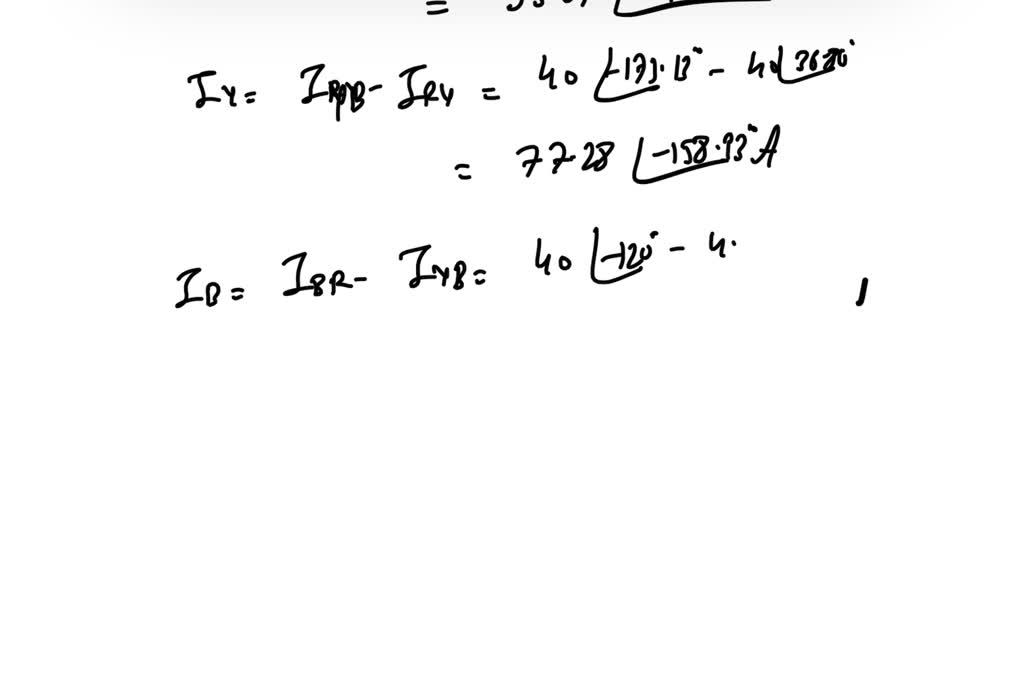 =
I_Y = I_YB - I_RY = 40 ∠-173.13° - 40∠36.86°
= 77.28 ∠-158.93° A
I_B = I_BR - I_YB = 40 ∠-120° - 4.